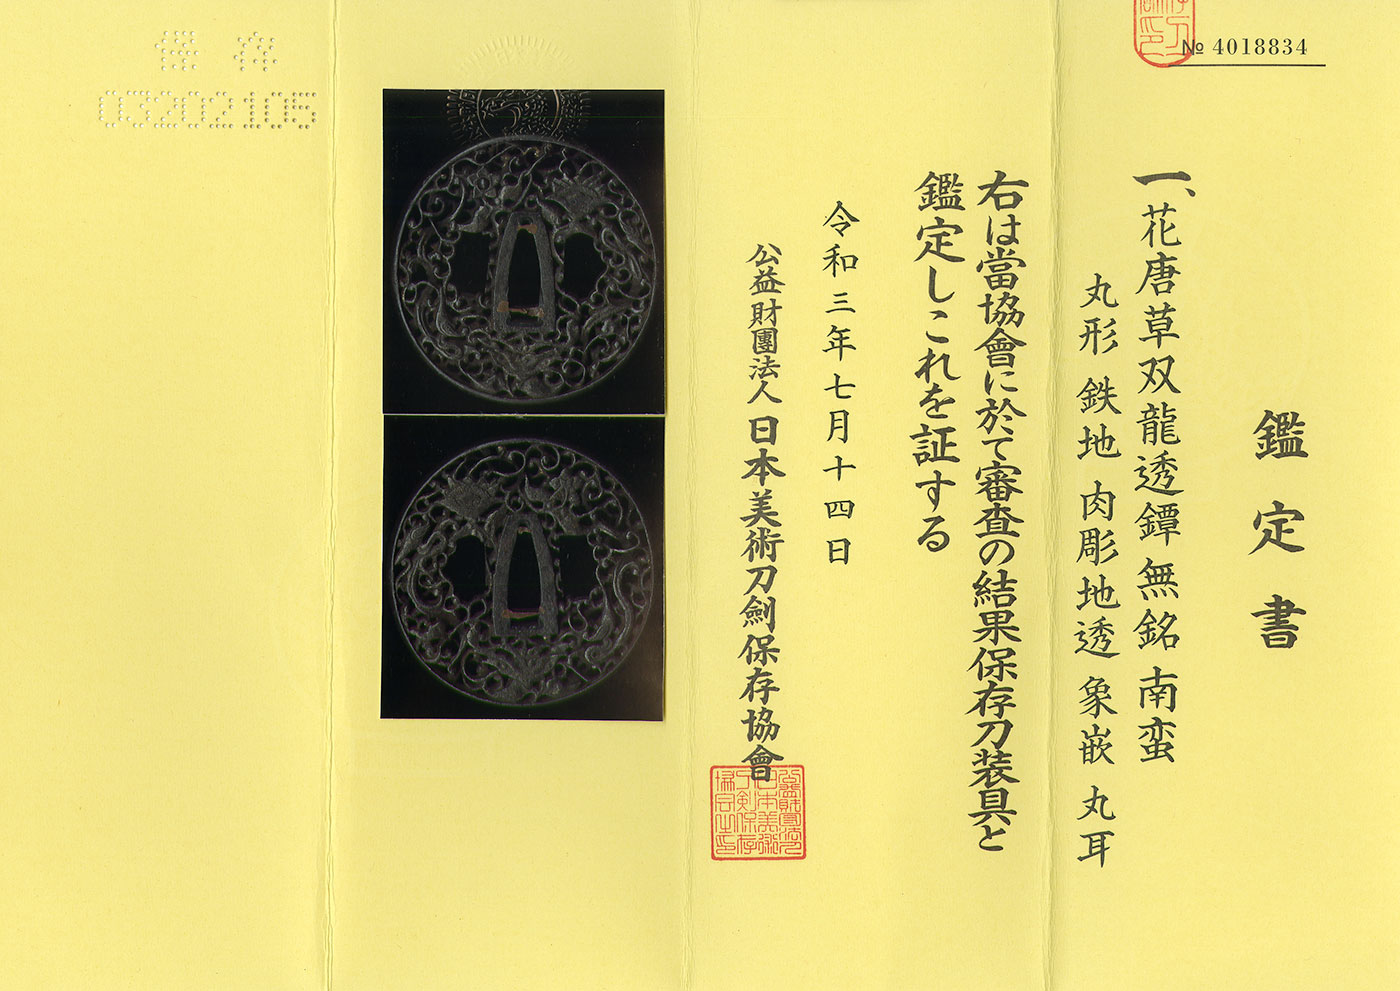 № 4018834
鑑定書
一、花唐草双龍透鐔 無銘 南蛮
丸形 鉄地 肉彫地透 象嵌 丸耳
右は當協會に於て審査の結果保存刀装具と
鑑定しこれを証する
令和三年七月十四日
公益財團法人 日本美術刀劍保存協會
保存
03202105